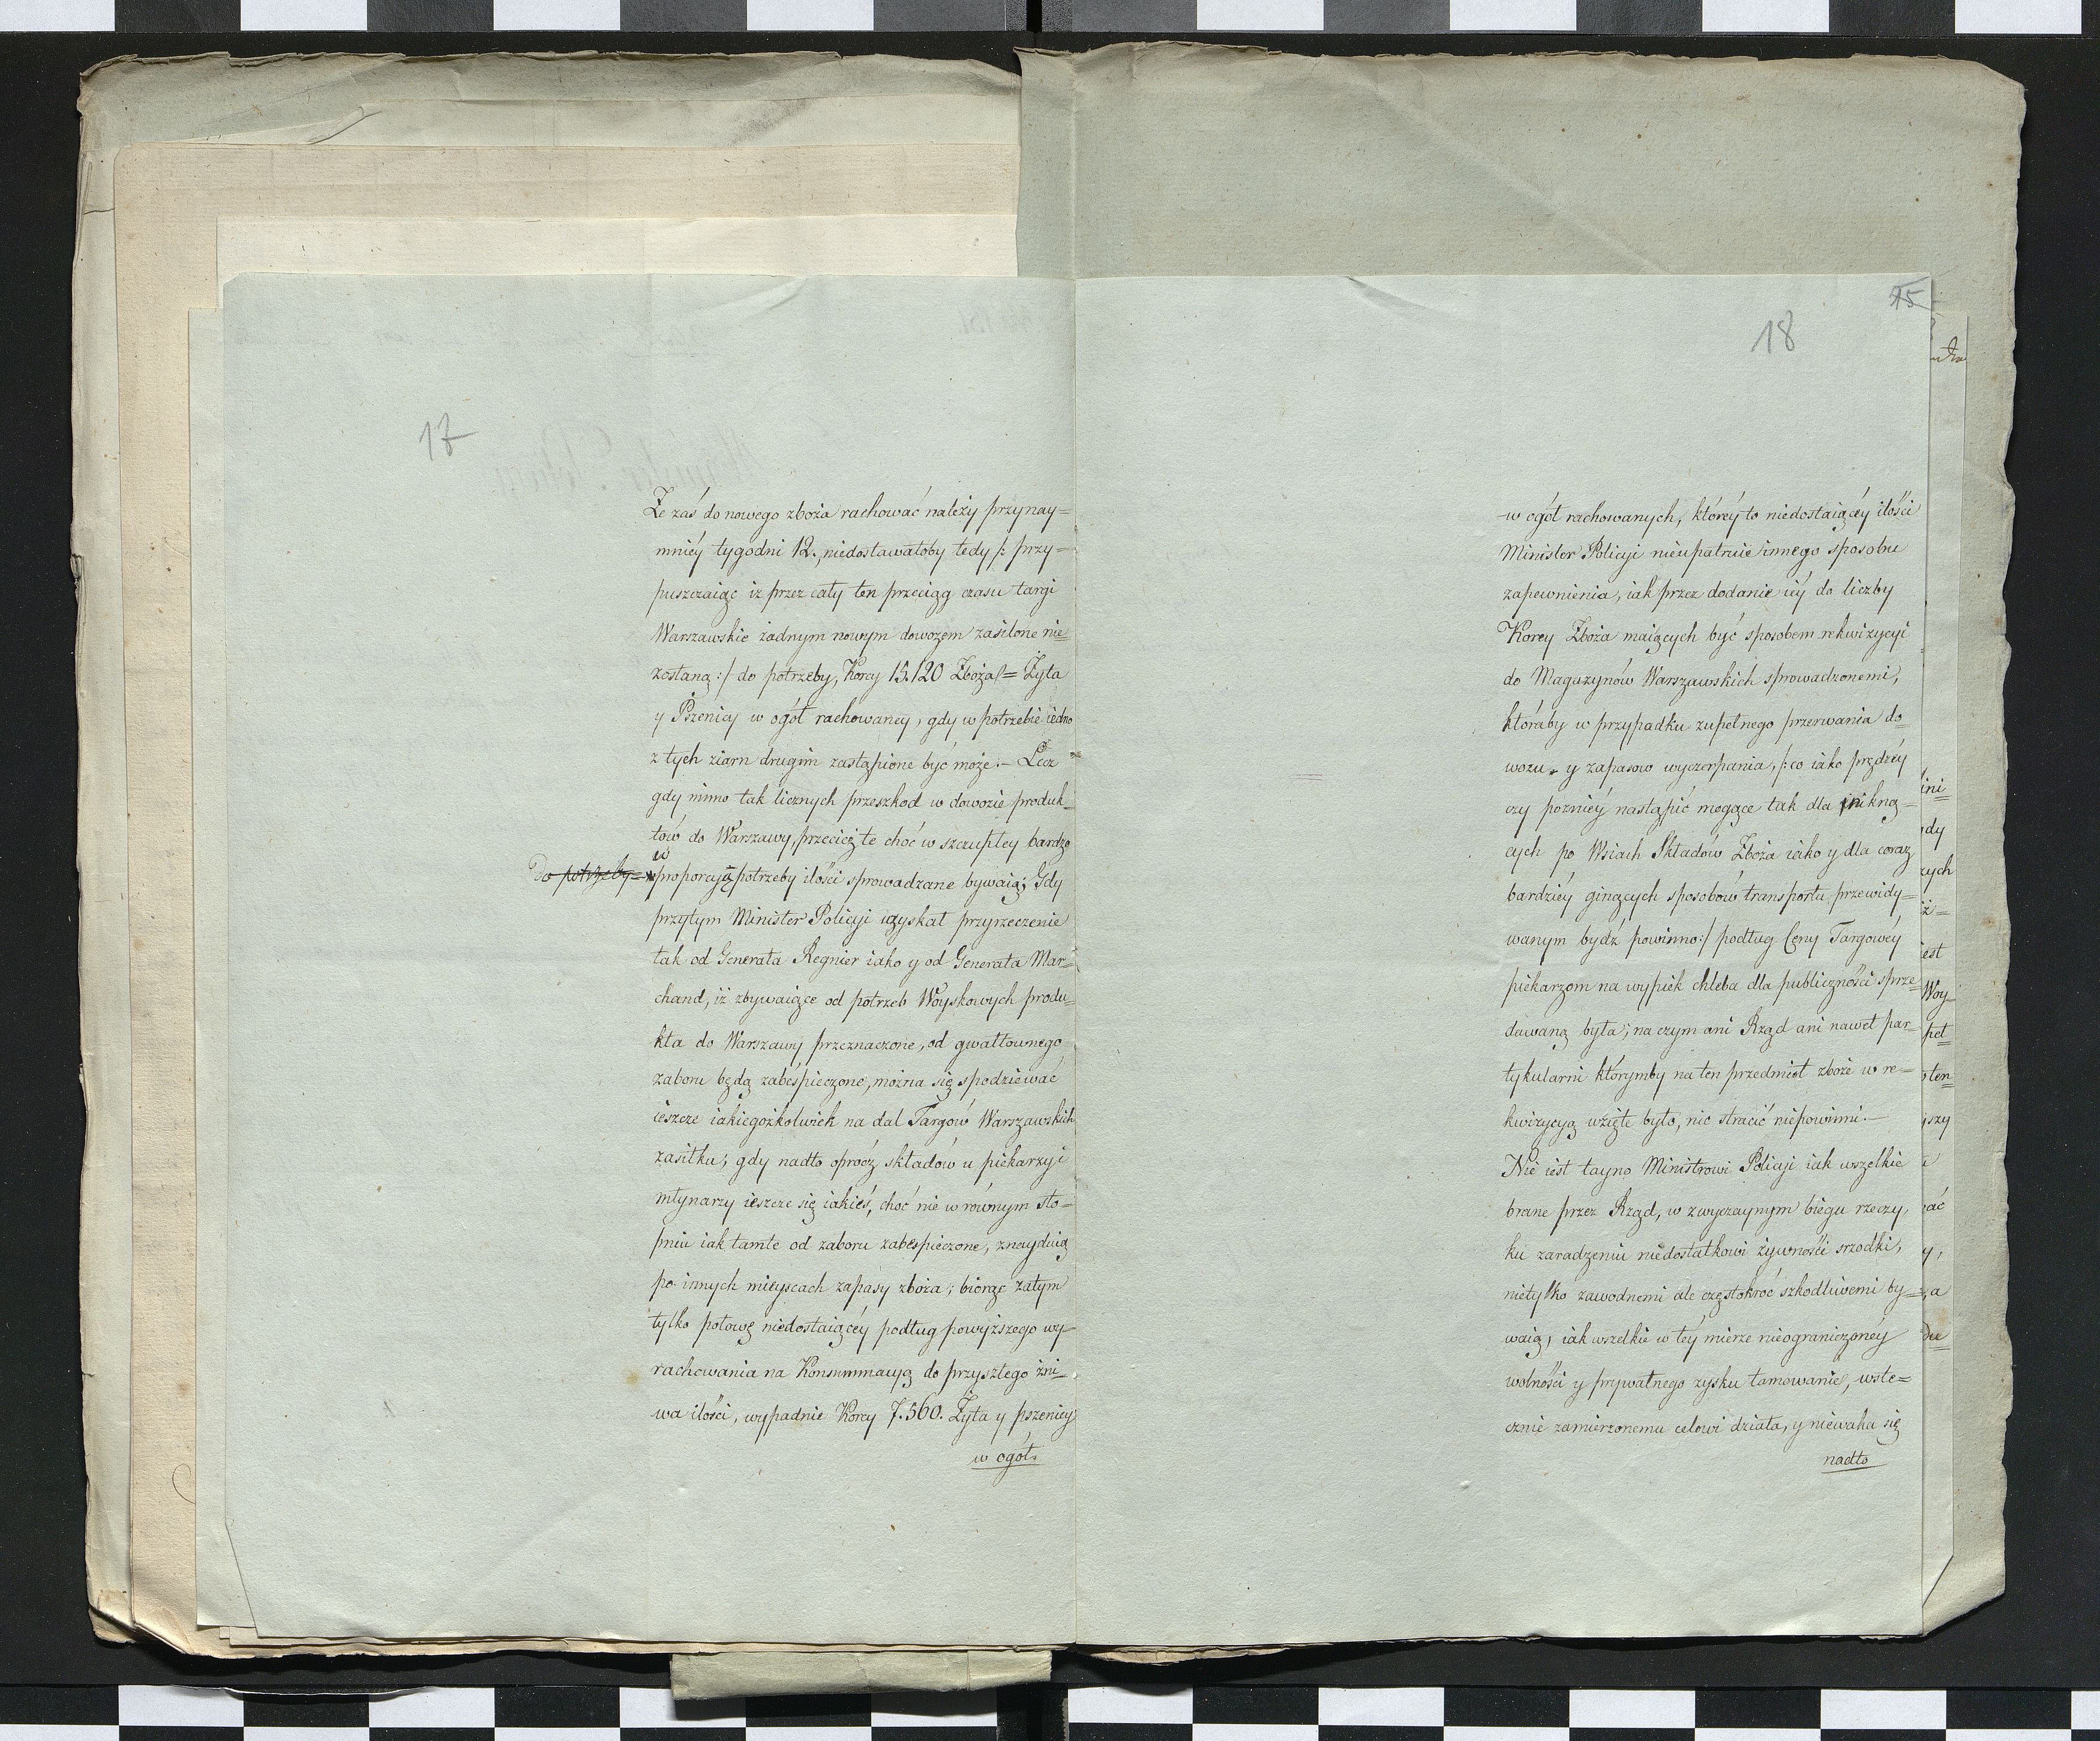 17
Że zaś do nowego zboża rachować należy przynay=
mniéy tygodni 12., niedostawałoby tedy /: przy=
puszczaiąc iż przez cały ten przeciąg czasu targi
Warszawskie żadnym nowym dowozem zasilone nie
zostaną :/ do potrzeby, Korcy 15.120 Zboża /= Żyta
y Pszenicy w ogół rachowaney, gdy w potrzebie iedno
z tych ziarn drugim zastąpione być może. – Lecz
gdy mimo tak licznych przeszkod w dowozie produk=
tów do Warszawy, przecież te choć w szczupłey bardzo
w
Do potrzeby = proporcyą potrzeby ilości sprowadzane bywaią; Gdy
przytym Minister Policyi uzyskał przyrzeczenie
tak od Generała Regnier iako y od Generała Mar=
chand, iż zbywaiące od potrzeb Woyskowych produ=
kta do Warszawy przeznaczone, od gwałtownego
zaboru będą zabespieczone, można się spodziewać
ieszcze iakiegożkolwiek na dal Targów Warszawskich
zasiłku; gdy nadto oprócz składów u piekarzy i
młynarzy ieszcze się iakieś, choć nie w równym sto=
pniu iak tamte od zaboru zabespieczone, znayduią
po innych mieyscach zapasy zboża; biorąc zatym
tylko połowę niedostaiącéy podług powyższego wy=
rachowania na Konsummacyą do przyszłego żni=
wa ilości, wypadnie Korcy 7.560. Żyta y pszenicy
w ogół.
75
18
w ogół rachowanych, któréy to niedostaiącéy ilości
Minister Policyi nieupatruie innego sposobu
zapewnienia, iak przez dodanie iéy do liczby
Korcy Zboża maiących być sposobem rekwizycyi
do Magazynów Warszawskich sprowadzonemi,
któraby w przypadku zupełnego przerwania do=
wozu y zapasow wyczerpania, /: co iako prędzéy
czy poźniéy nastąpić mogące tak dla nikną=
cych po Wsiach Składów Zboża iako y dla coraz
bardziéy ginących sposobów transportu przewidy=
wanym bydź powinno :/ podług Ceny Targowéy
piekarzom na wypiek chleba dla publiczności sprze=
dawaną była; na czym ani Rząd ani nawet par=
tykularni którymby na ten przedmiot zboże w re=
kwizycyą wzięte było, nic stracić niepowinni. –
Nie iest tayno Ministrowi Policyi iak wszelkie
brane przez Rząd, w zwyczaynym biegu rzeczy,
ku zaradzeniu niedostatkowi żywności srzodki,
nietylko zawodnemi ale częstokroć szkodliwemi by=
waią, iak wszelkie w téy mierze nieograniczonéy
wolności y prywatnego zysku tamowanie, wste=
cznie zamierzonemu celowi działa, y niewaha się
nadto